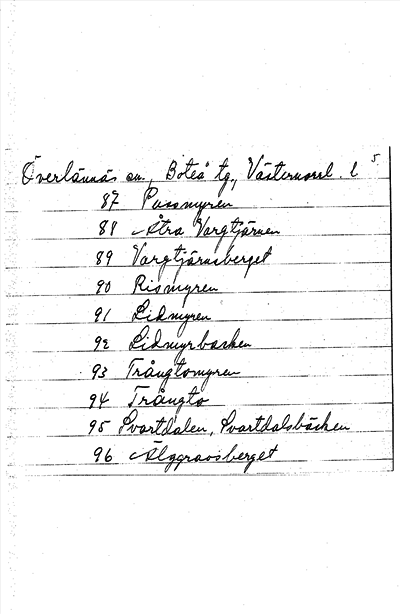 Överlännäs sn., Boteå tg., Västernorrl. l 5.
87 Pussmyren
88 Åtra Vargtjärnen
89 Vargtjärnsberget
90 Rismyren
91 Lidmyren
92 Lidmyrbacken
93 Trångtomyren
94 Trångto
95 Svartdalen, Svartdalsbäcken
96 Älggravsberget